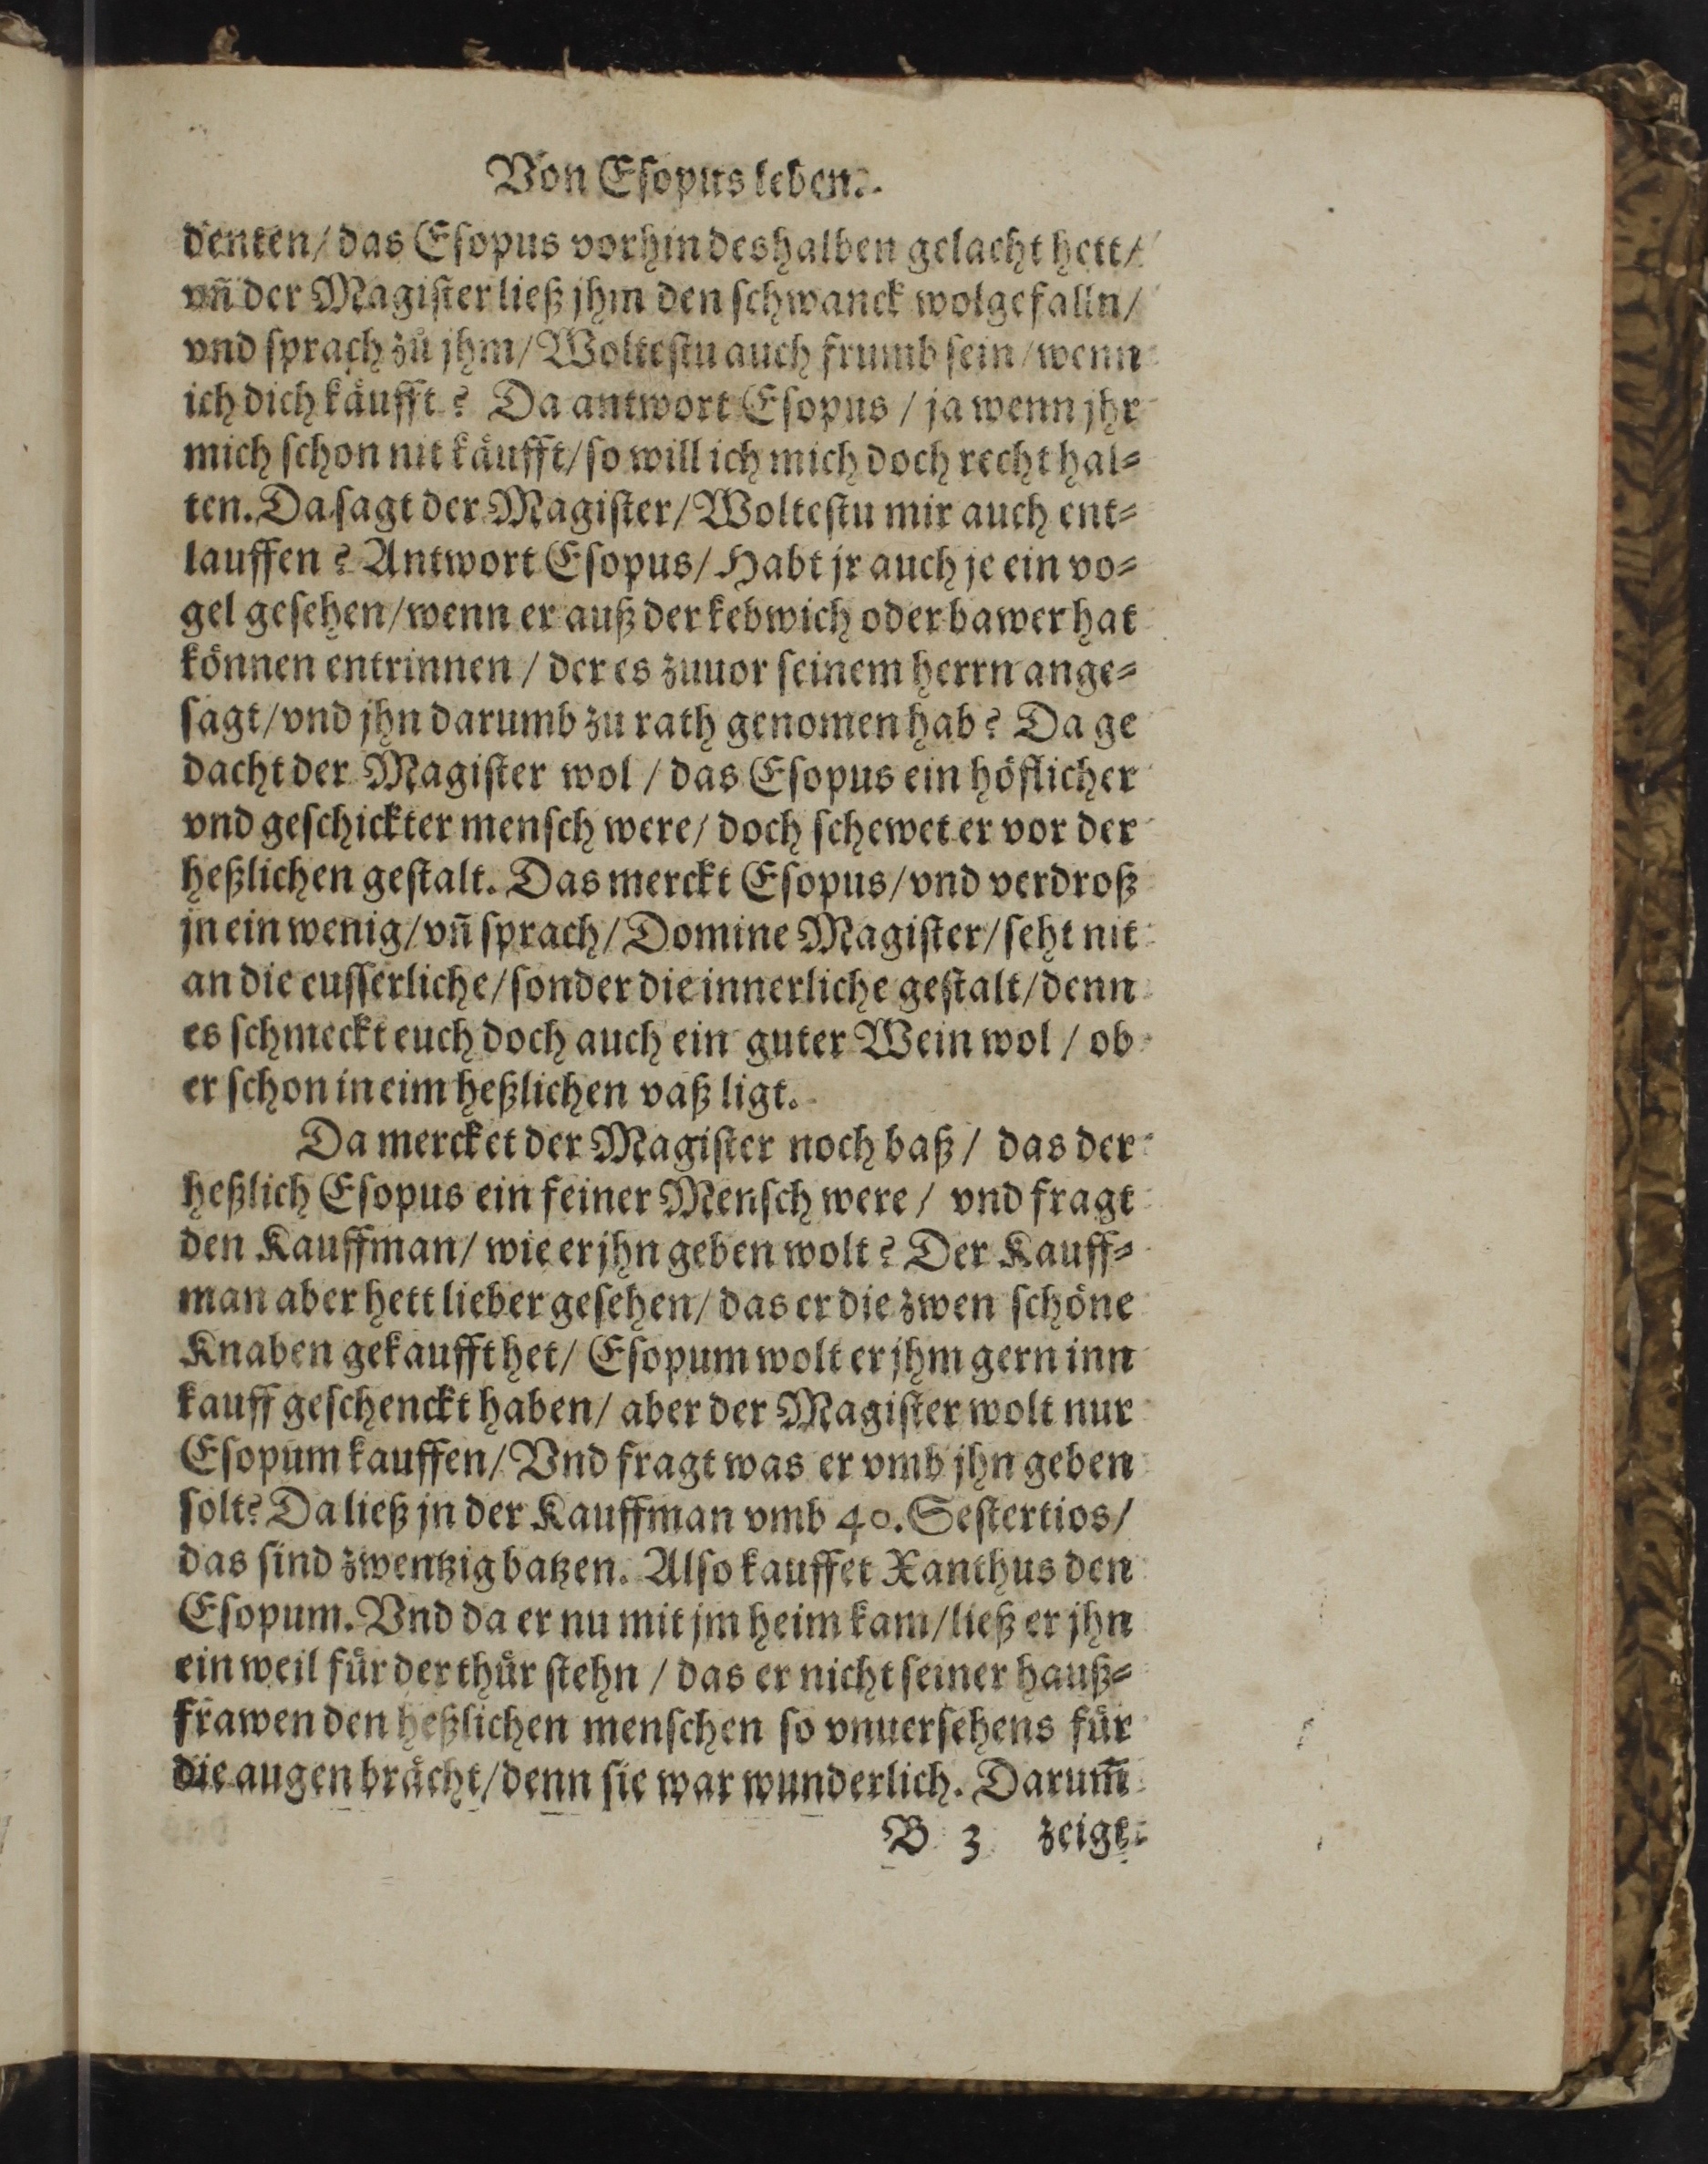 Von Esopus leben.
denten/ das Esopus vorhin deshalben gelacht hett/
vn̄ der Magister ließ jhm den schwanck wolgefalln/
vnd sprach zů jhm/ Woltestu auch frumb sein/ wenn
ich dich kåufft? Da antwort Esopus / ja wenn jhr
mich schon nit kåufft/ so will ich mich doch recht hal⸗
ten. Da sagt der Magister/ Woltestu mir auch ent⸗
lauffen? Antwort Esopus/ Habt jr auch je ein vo⸗
gel gesehen/ wenn er auß der kebwich oder bawer hat
können entrinnen / der es zuuor seinem herrn ange⸗
sagt/ vnd jhn darumb zu rath genomen hab? Da ge
dacht der Magister wol / das Esopus ein höflicher
vnd geschickter mensch were/ doch schewet er vor der
heßlichen gestalt. Das merckt Esopus/ vnd verdroß
jn ein wenig/ vn̄ sprach/ Domine Magister/ seht nit
an die eusserliche/ sonder die innerliche gestalt/ denn
es schmeckt euch doch auch ein guter Wein wol / ob
er schon in eim heßlichen vaß ligt.
Da mercket der Magister noch baß / das der
heßlich Esopus ein feiner Mensch were / vnd fragt
den Kauffman/ wie er jhn geben wolt? Der Kauff⸗
man aber hett lieber gesehen/ das er die zwen schöne
Knaben gekaufft het/ Esopum wolt er jhm gern inn
kauff geschenckt haben/ aber der Magister wolt nur
Esopum kauffen/ Vnd fragt was er vmb jhn geben
solt? Da ließ jn der Kauffman vmb 40. Sestertios/
das sind zwentzig batzen. Also kauffet Xanthus den
Esopum. Vnd da er nu mit jm heim kam/ ließ er jhn
ein weil für der thür stehn / das er nicht seiner hauß⸗
frawen den heßlichen menschen so vnuersehens für
die augen brächt/ denn sie war wunderlich. Darum̄
B 3 zeigt